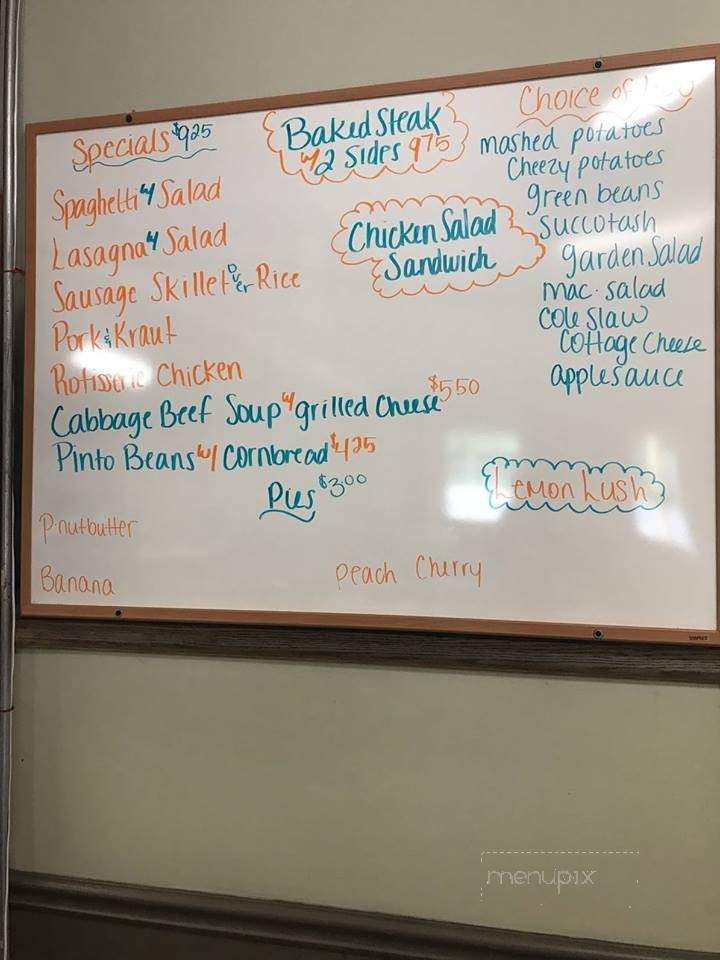 Specials $9.25
Spaghetti w/ Salad
Lasagna w/ Salad
Sausage Skillet Over Rice
Pork & Kraut
Rotisserie Chicken
Cabbage Beef Soup w/ grilled Cheese $5.50
Pinto Beans w/ Cornbread $4.25
Pies $3.00
P.nutbutter
Banana
Peach Cherry
Baked Steak
w/ 2 Sides 9.75
Chicken Salad
Sandwich
Choice of
mashed potatoes
Cheezy potatoes
green beans
Succotash
garden Salad
mac. salad
Cole Slaw
Cottage Cheese
applesauce
Lemon Lush
menupix